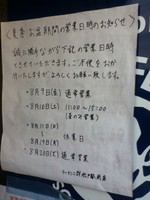 〈夏季 お盆期間の営業日時のお知らせ〉
誠に勝手ながら下記の営業日時
とさせていただきます。ご不便をおか
け いたしますが よろしくお願い致します。
・8月9日(金) 通常営業
・8月10日(土) 11:00〜15:00
(昼のみ営業)
・8月11日(日)
〜 休業日
8月19日(月)
・8月20日(火) 通常営業